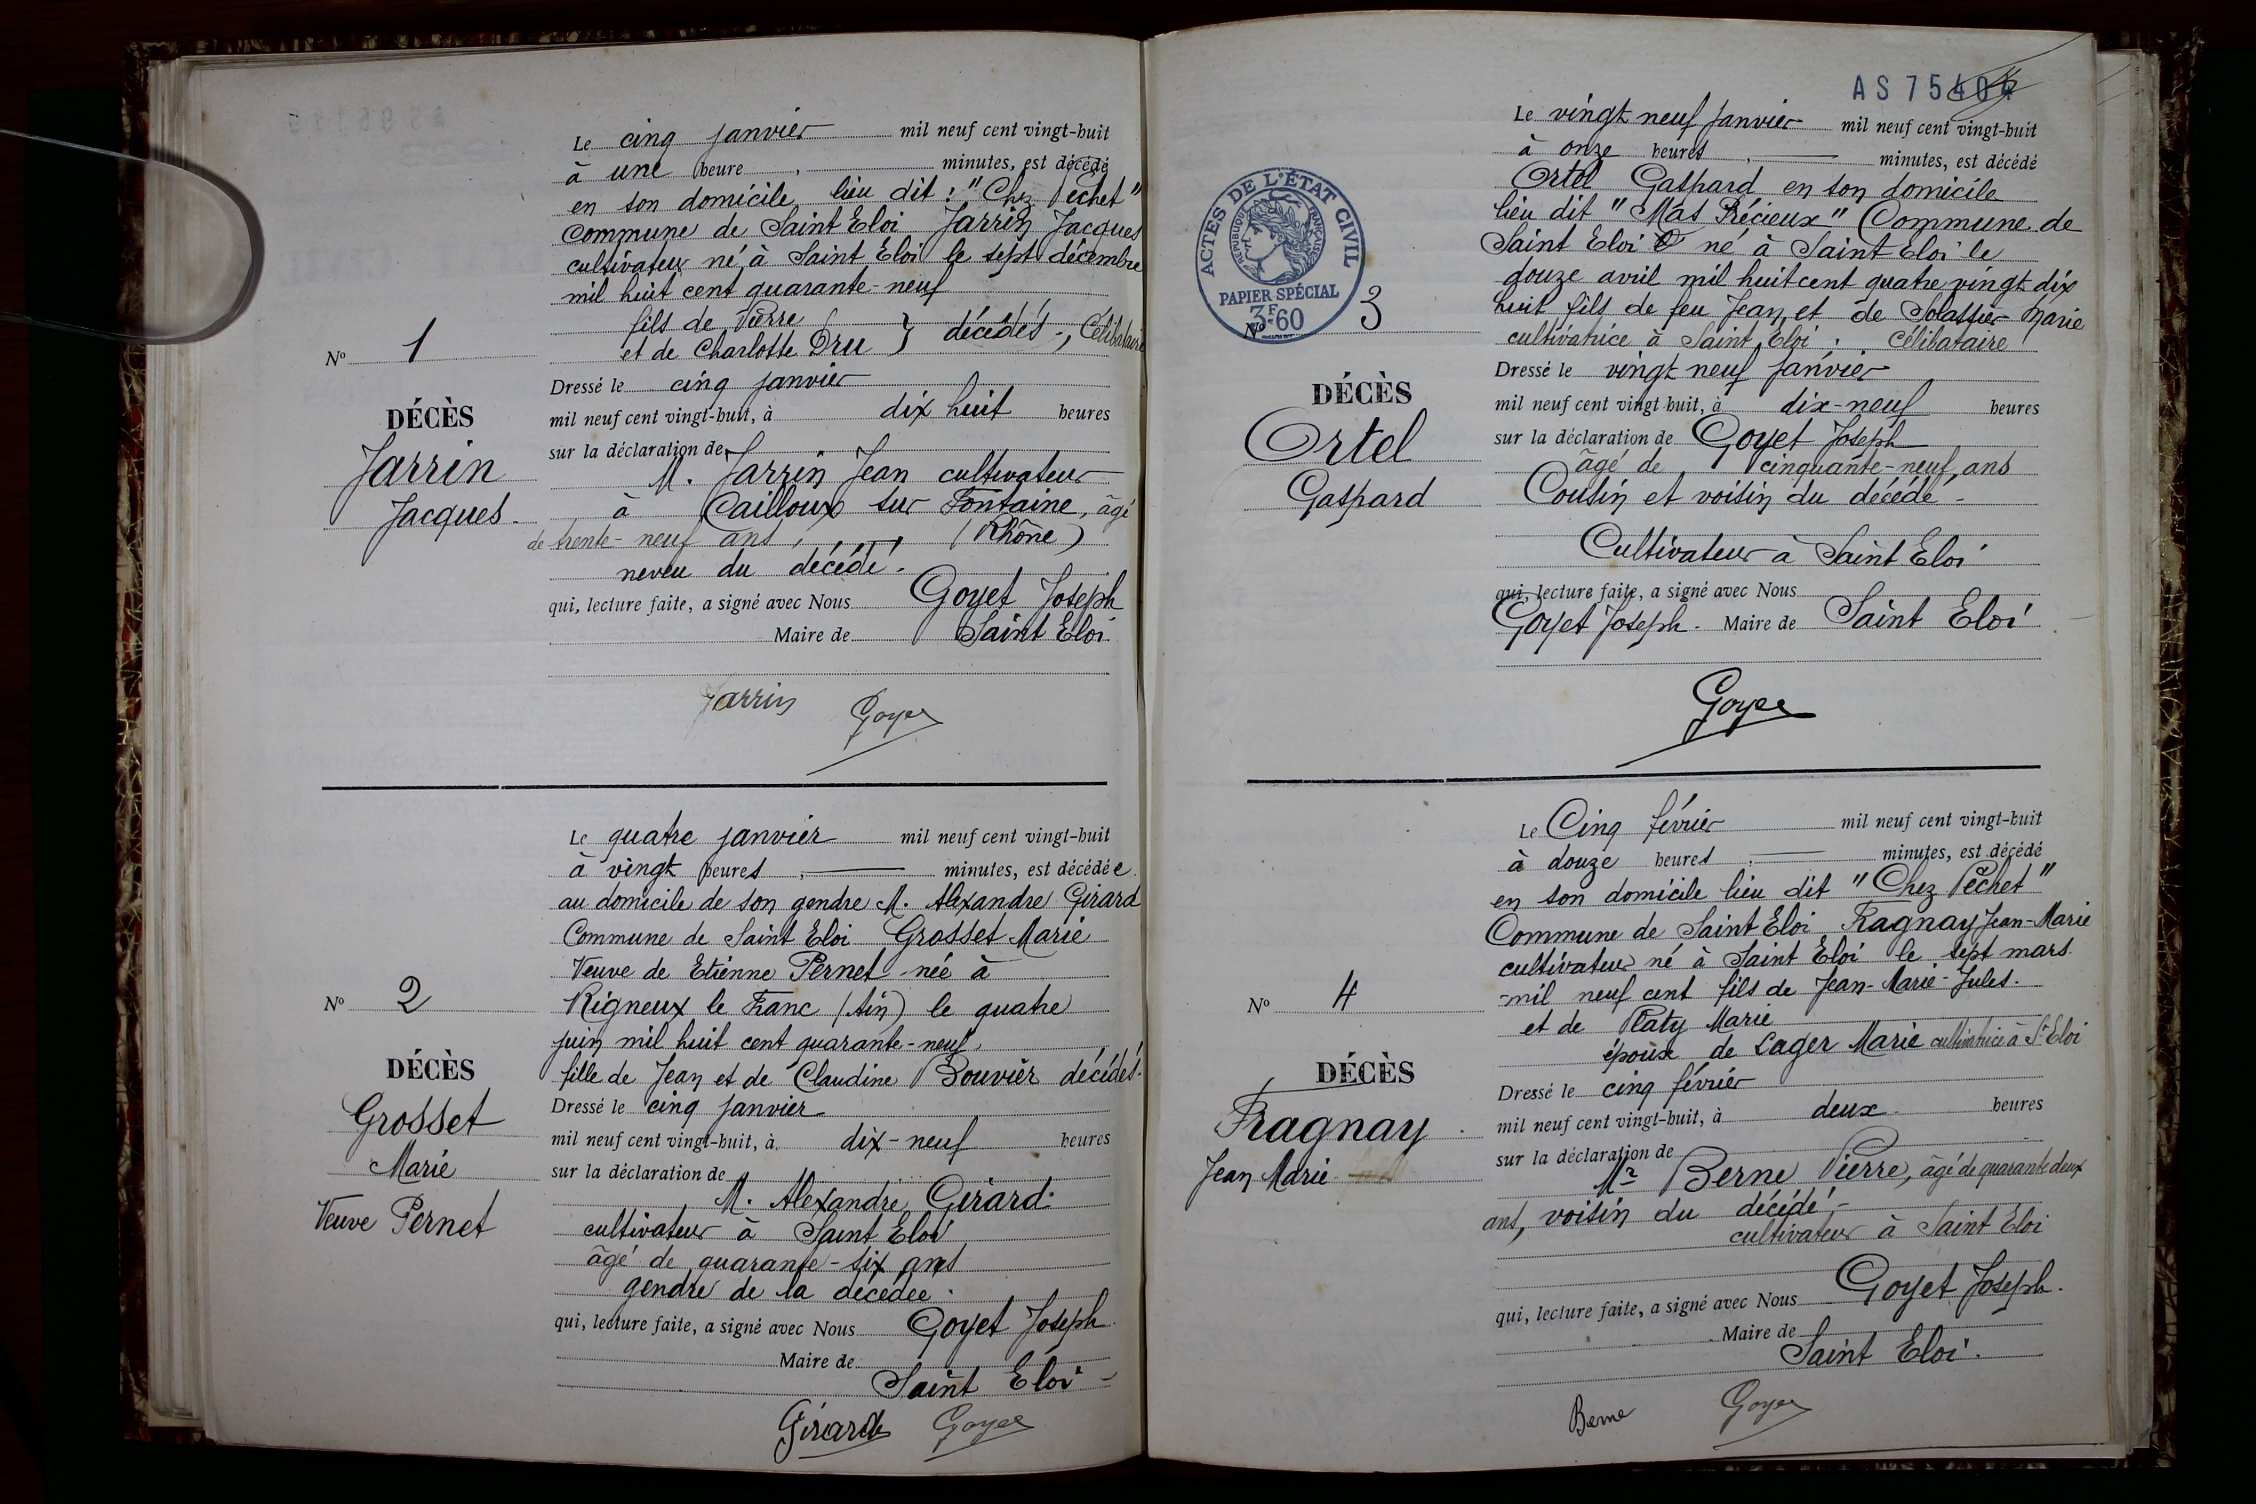 Le cinq janvier mil neuf cent vingt-huit
à une heure, minutes, est décédé
en son domicile lieu dit : "Chez Pechet"
Commune de Saint Eloi Jarrin Jacques
cultivateur né à Saint Eloi le sept décembre
mil huit cent quarante-neuf
fils de Pierre
et de Charlotte Dru } décédés -, Célibataire
Nº 1
DÉCÈS
Jarrin
Jacques.
Dressé le cinq janvier
mil neuf cent vingt-huit, à dix huit heures
sur la déclaration de
M. Jarrin Jean cultivateur
à Cailloux sur Fontaine, âgé
de trente-neuf ans, (Rhône)
neveu du décédé.
qui, lecture faite, a signé avec Nous Goyet Joseph
Maire de Saint Eloi
Jarrin Goyet
Le quatre janvier mil neuf cent vingt-huit
à vingt heures, minutes, est décédée
au domicile de son gendre M. Alexandre Girard
Commune de Saint Eloi Grosset Marie
Veuve de Etienne Pernet née à
Rigneux le Franc (Ain) le quatre
juin mil huit cent quarante-neuf,
fille de Jean et de Claudine Bouvier décédés.
Nº 2
DÉCÈS
Grosset
Marie
Veuve Pernet
Dressé le cinq janvier
mil neuf cent vingt-huit, à dix-neuf heures
sur la déclaration de
M. Alexandre Girard.
cultivateur à Saint Eloi
âgé de quarante-six ans
gendre de la décédée.
qui, lecture faite, a signé avec Nous Goyet Joseph.
Maire de
Saint Eloi -
Girard Goyet
AS 75404
ACTES DE L'ÉTAT CIVIL
RÉPUBLIQUE FRANÇAISE
PAPIER SPÉCIAL
3F.60
Le vingt neuf janvier mil neuf cent vingt-huit
à onze heures, minutes, est décédé
Ortel Gaspard en son domicile
lieu dit "Mas Précieux" Commune de
Saint Eloi né à Saint Eloi le
douze avril mil huit cent quatre vingt dix
huit fils de feu Jean et de Solassier Marie
cultivatrice à Saint Eloi. Célibataire
Nº 3
DÉCÈS
Ortel
Gaspard
Dressé le vingt neuf janvier
mil neuf cent vingt huit, à dix-neuf heures
sur la déclaration de Goyet Joseph
âgé de cinquante-neuf ans
Cousin et voisin du décédé -
Cultivateur à Saint Eloi
qui, lecture faite, a signé avec Nous
Goyet Joseph. Maire de Saint Eloi
Goyet
Le Cinq février mil neuf cent vingt-huit
à douze heures, minutes, est décédé
en son domicile lieu dit "Chez Pèchet"
Commune de Saint Eloi Fragnay Jean-Marie
cultivateur né à Saint Eloi le sept mars
mil neuf cent fils de Jean-Marie-Jules.
et de Platy Marie
époux de Lager Marie cultivatrice à St Eloi
Nº 4
DÉCÈS
Fragnay
Jean Marie
Dressé le cinq février
mil neuf cent vingt-huit, à deux heures
sur la déclaration de
Mr Berne Pierre, âgé de quarante deux
ans, voisin du décédé, -
cultivateur à Saint Eloi
qui, lecture faite, a signé avec Nous Goyet Joseph.
Maire de
Saint Eloi.
Berne Goyet